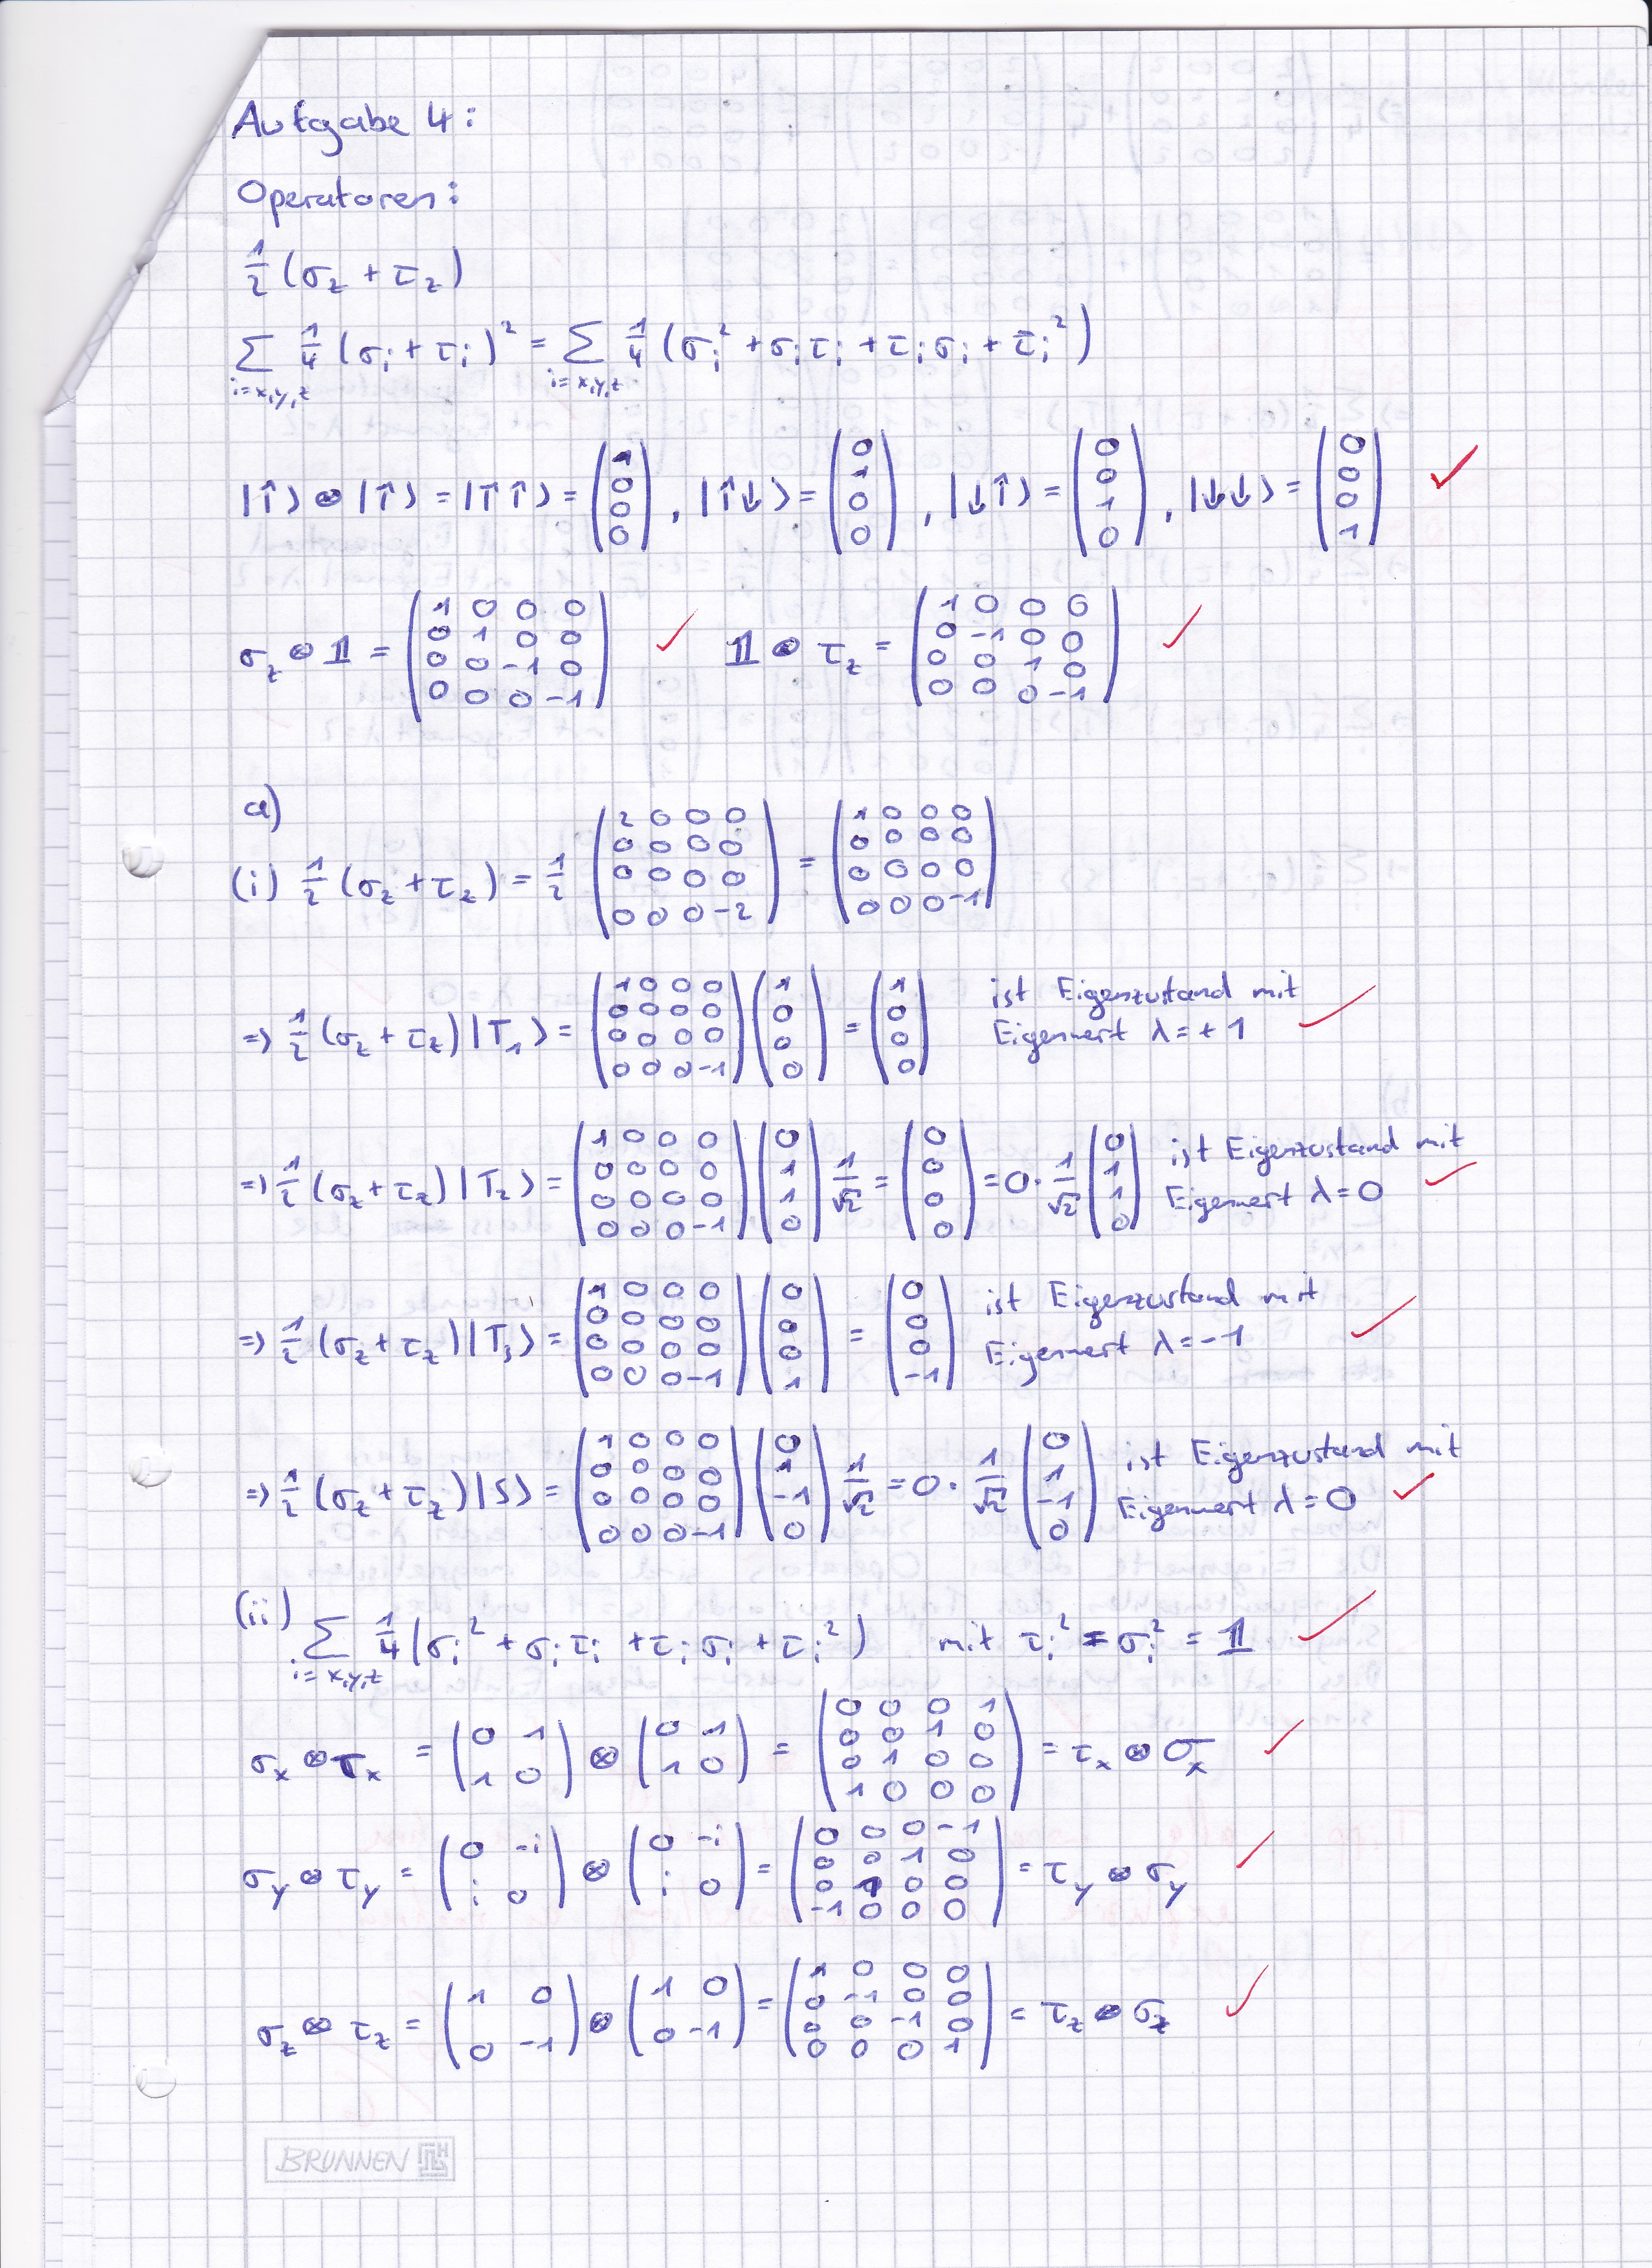 Aufgabe 4:
Operatoren:
1/2 (σz + τz)
∑i=x,y,z 1/4 (σi + τi)² = ∑i=x,y,z 1/4 (σi² + σiτi + τiσi + τi²)
|↑⟩ ⊗ |↑⟩ = |↑↑⟩ = (1 0 0 0), |↑↓⟩ = (0 1 0 0), |↓↑⟩ = (0 0 1 0), |↓↓⟩ = (0 0 0 1) ✓
σz ⊗ 𝟙 = (1 0 0 0; 0 1 0 0; 0 0 -1 0; 0 0 0 -1) ✓ 𝟙 ⊗ τz = (1 0 0 0; 0 -1 0 0; 0 0 1 0; 0 0 0 -1) ✓
a)
(i) 1/2 (σz + τz) = 1/2 (2 0 0 0; 0 0 0 0; 0 0 0 0; 0 0 0 -2) = (1 0 0 0; 0 0 0 0; 0 0 0 0; 0 0 0 -1)
=> 1/2 (σz + τz) |T1⟩ = (1 0 0 0; 0 0 0 0; 0 0 0 0; 0 0 0 -1) (1 0 0 0) = (1 0 0 0) ist Eigenzustand mit
Eigenwert λ = +1 ✓
=> 1/2 (σz + τz) |T2⟩ = (1 0 0 0; 0 0 0 0; 0 0 0 0; 0 0 0 -1) (0 1 1 0) 1/√2 = (0 0 0 0) = 0 · 1/√2 (0 1 1 0) ist Eigenzustand mit
Eigenwert λ = 0 ✓
=> 1/2 (σz + τz) |T3⟩ = (1 0 0 0; 0 0 0 0; 0 0 0 0; 0 0 0 -1) (0 0 0 1) = (0 0 0 -1) ist Eigenzustand mit
Eigenwert λ = -1 ✓
=> 1/2 (σz + τz) |S⟩ = (1 0 0 0; 0 0 0 0; 0 0 0 0; 0 0 0 -1) (0 1 -1 0) 1/√2 = 0 · 1/√2 (0 1 -1 0) ist Eigenzustand mit
Eigenwert λ = 0 ✓
(ii) ∑i=x,y,z 1/4 (σi² + σiτi + τiσi + τi²) mit τi² = σi² = 𝟙 ✓
σx ⊗ τx = (0 1; 1 0) ⊗ (0 1; 1 0) = (0 0 0 1; 0 0 1 0; 0 1 0 0; 1 0 0 0) = τx ⊗ σx ✓
σy ⊗ τy = (0 -i; i 0) ⊗ (0 -i; i 0) = (0 0 0 -1; 0 0 1 0; 0 1 0 0; -1 0 0 0) = τy ⊗ σy ✓
σz ⊗ τz = (1 0; 0 -1) ⊗ (1 0; 0 -1) = (1 0 0 0; 0 -1 0 0; 0 0 -1 0; 0 0 0 1) = τz ⊗ σz ✓
BRUNNEN